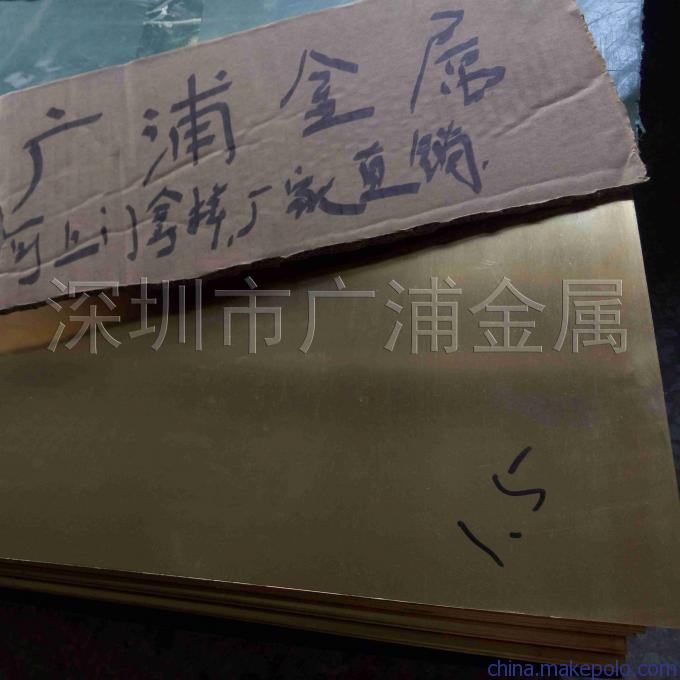 广浦金属
可上门拿样，厂家直销.
深圳市广浦金属
1.5
china.makepolo.com